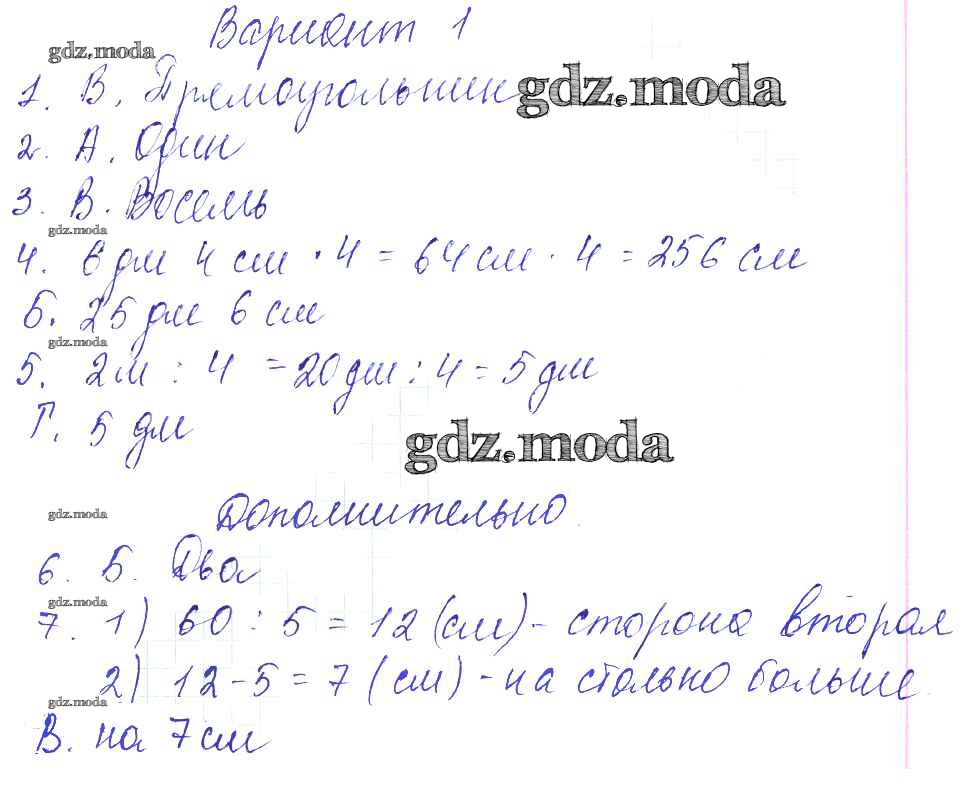 Вариант 1
gdz.moda
1. В. Прямоугольник
gdz.moda
2. А. Один
3. В. Восемь
gdz.moda
4. 6 дм 4 см · 4 = 64 см · 4 = 256 см
Б. 25 дм 6 см
gdz.moda
5. 2 м : 4 = 20 дм : 4 = 5 дм
Г. 5 дм
gdz.moda
gdz.moda
Дополнительно
6. Б. Два
gdz.moda
7. 1) 60 : 5 = 12 (см) - сторона вторая
2) 12 - 5 = 7 (см) - на столько больше
gdz.moda
В. на 7 см